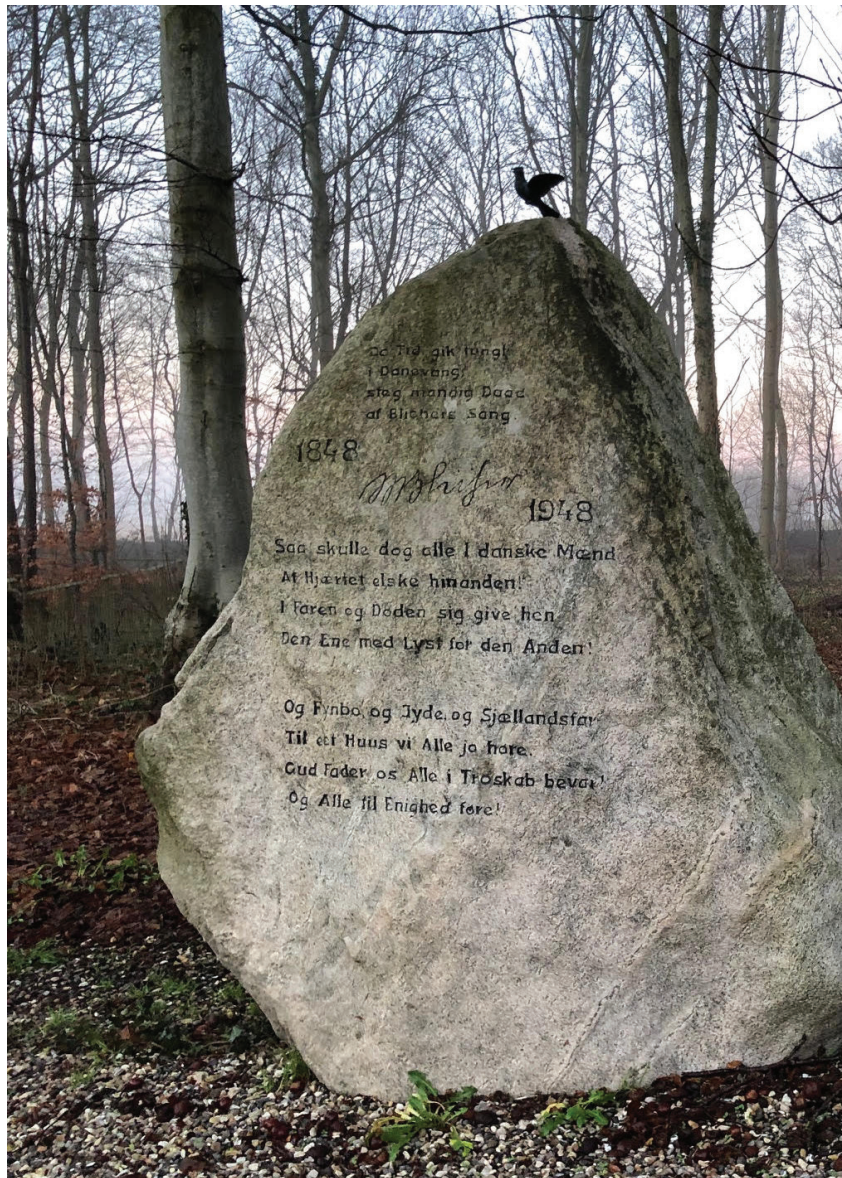 Da Tid gik tungt
i Danevang,
steg mandig Daad
af Blichers Sang.
1848
SSBlicher
1948
Saa skulle dog alle I danske Mænd
Af Hjertet elske hinanden!
I Faren og Döden sig give hen
Den Ene med Lyst for den Anden!
Og Fynbo, og Jyde, og Sjællandsfar
Til eet Huus vi Alle jo høre.
Gud Fader os Alle i Troskab bevar!
Og Alle til Enighed føre!